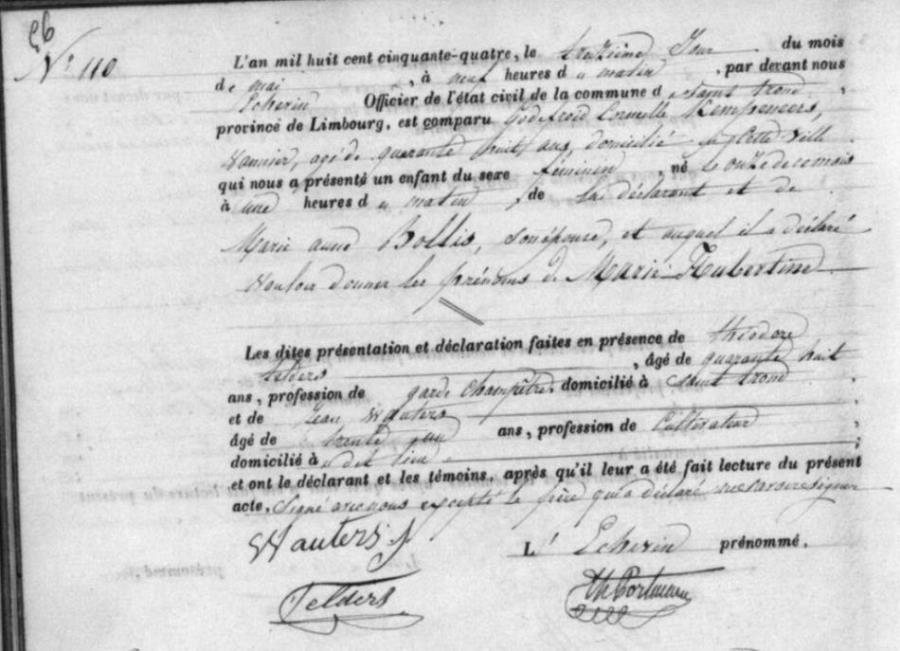 96
N° 110
L'an mil huit cent cinquante-quatre, le treizième Jour du mois
de mai, à neuf heures du matin, par devant nous
Echevin Officier de l'état civil de la commune de Saint trond,
province de Limbourg, est comparu Godefroid Corneille Kempeneers,
Vannier, agé de quarante huit ans, domicilié en Cette Ville
qui nous a présenté un enfant du sexe féminin, né le onze de ce mois
à une heures du matin, de lui déclarant et de
Marie anne Bollis, son épouse, et auquel il a déclaré
vouloir donner les prénoms de Marie Hubertine
Les dites présentation et déclaration faites en présence de théodore
Telders, âgé de quarante huit
ans, profession de garde Champêtre, domicilié à Saint trond
et de Jean Wauters
âgé de trente un ans, profession de Cultivateur
domicilié à udit lieu;
et ont le déclarant et les témoins, après qu'il leur a été fait lecture du présent
acte, signé avec nous excepté le père qui a déclaré ne savoir signer
Wauters J
L' Echevin prénommé.
Telders